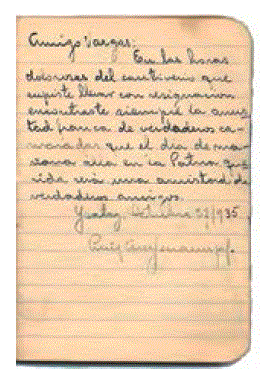 Amigo Vargas:
En las horas
dolorosas del cautiverio que
supiste llevar con resignacion
encontraste siempre la amis-
tad franca de verdaderos ca-
maradas que el dia de ma-
ñana allá en la Patria que-
rida será una amistad de
verdaderos amigos.
Octubre 22/935